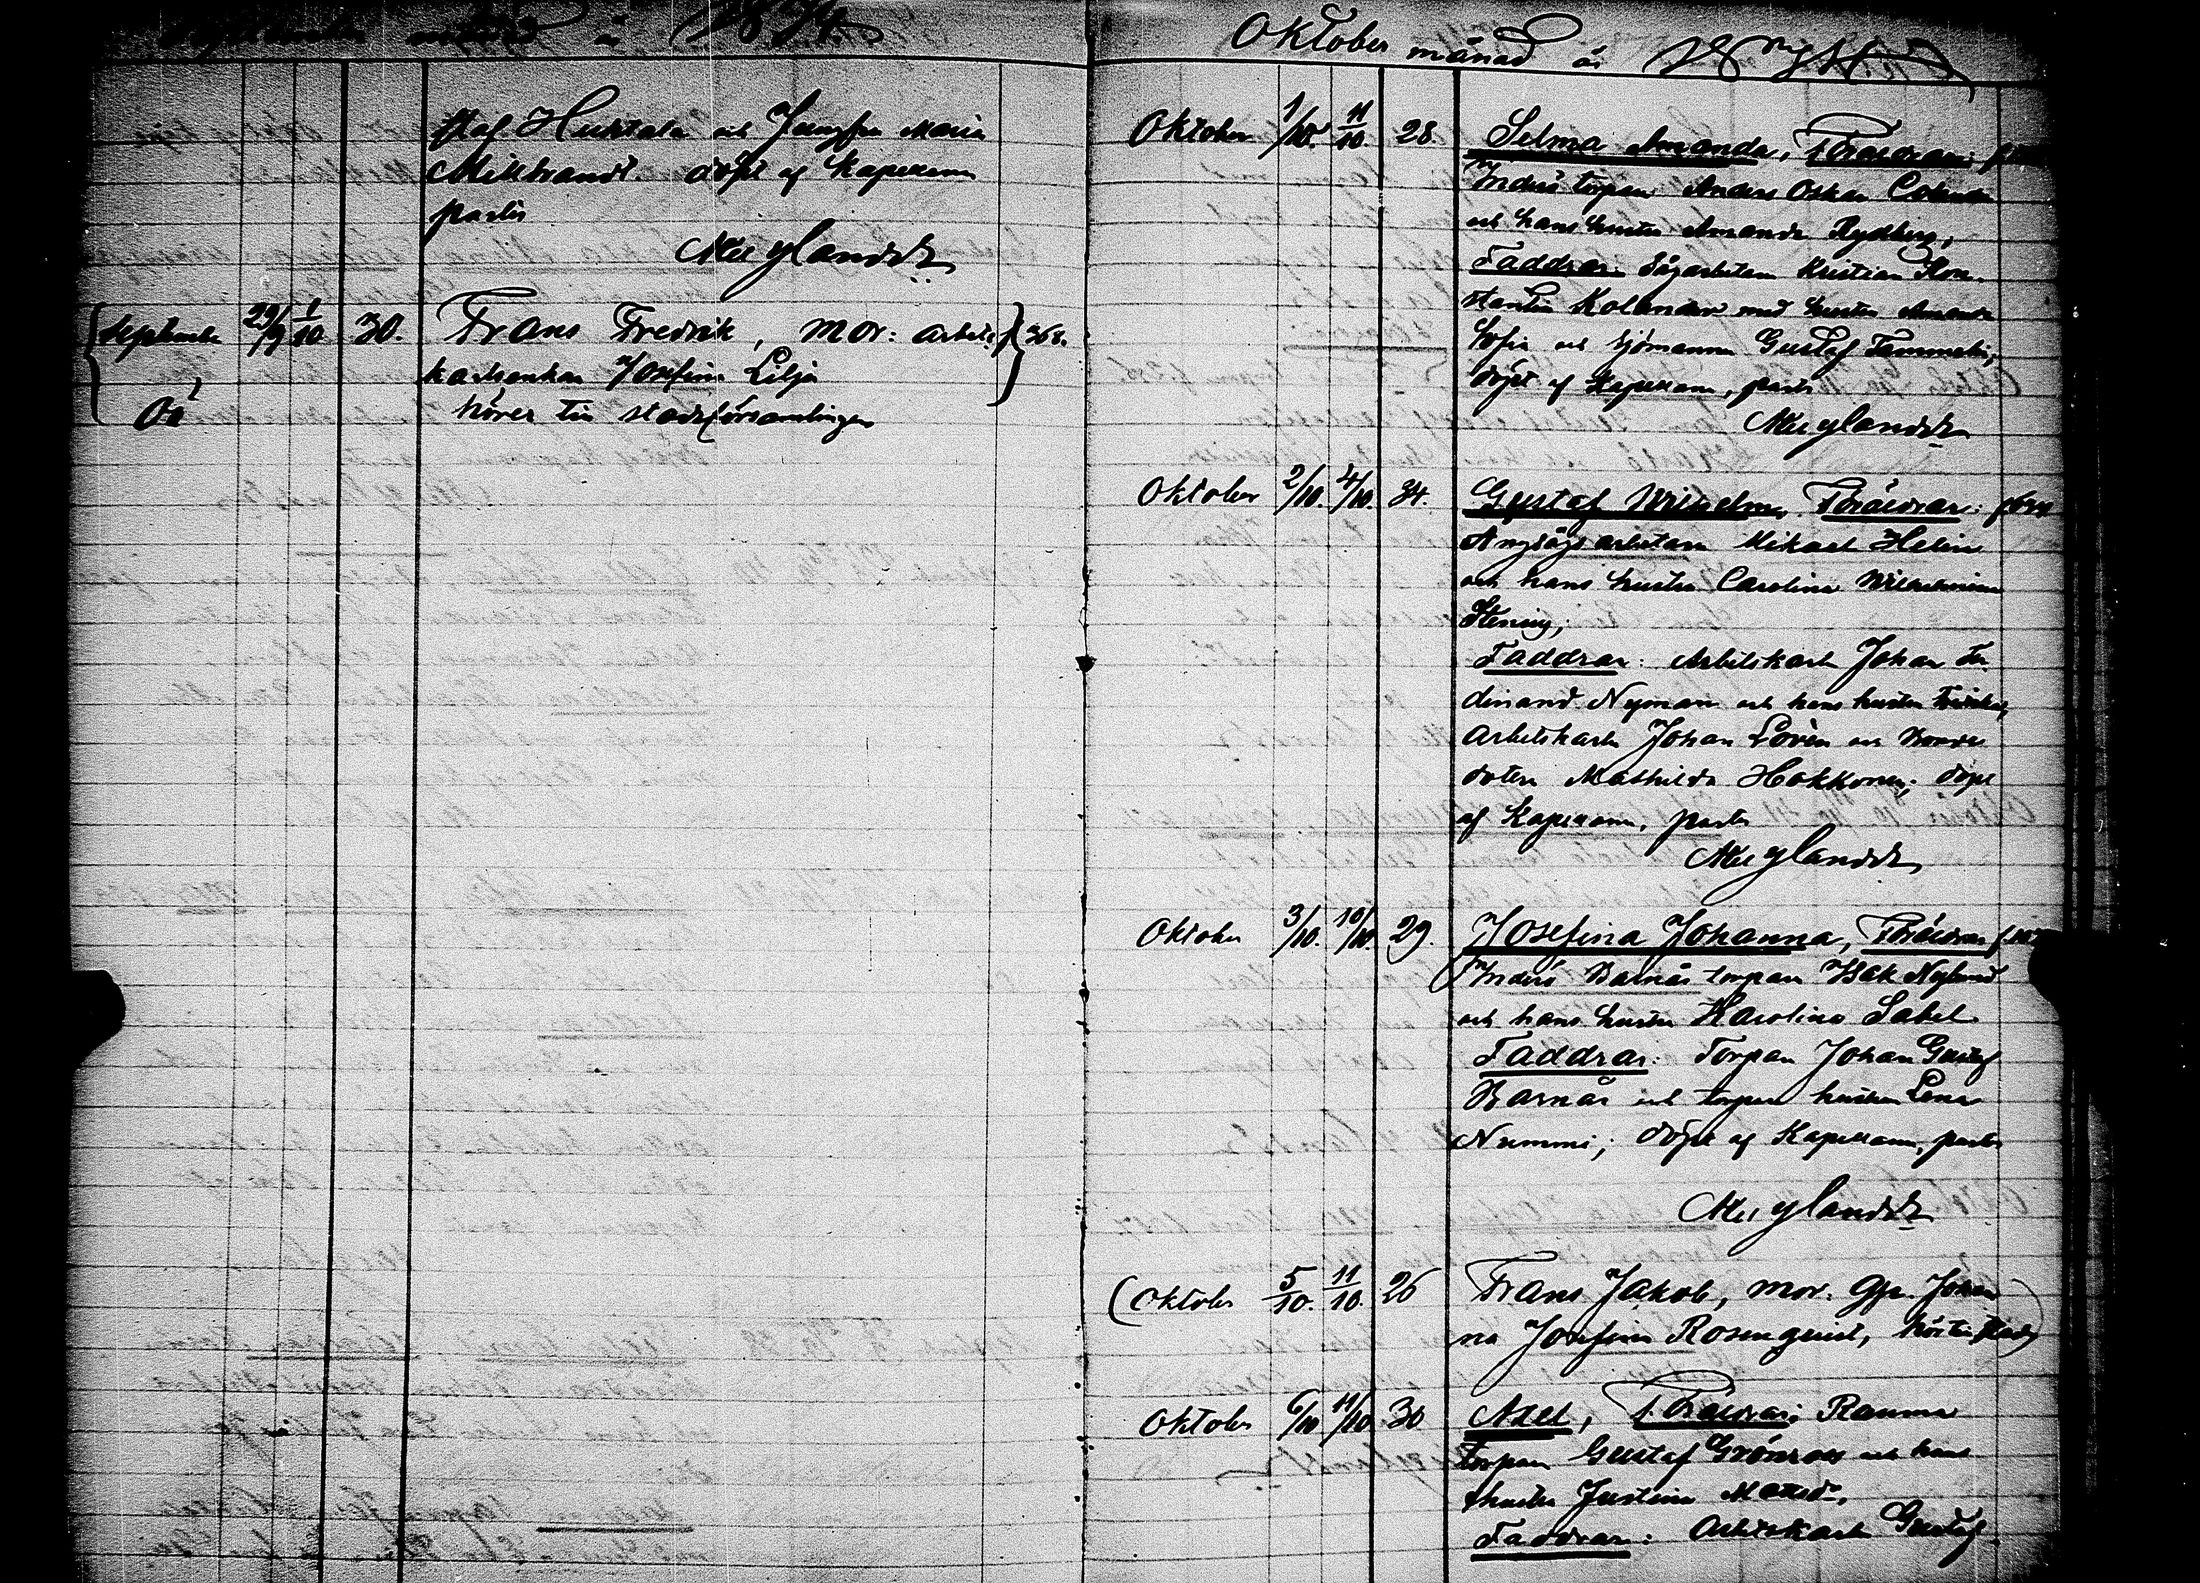 September månad år 1874
staf Huhtala och Jungfru Maria
Millbrandt. döpt af Kapellanen
pastis
Nylandér
September 29/9 1/10 30. Frans Fredrik, mor: arbets-
karlsenkan Josefina Lilja
hörer till stadsförsamlingen
Oä
368.
Oktober månad år 1874
Oktober 1/10. 11/10. 28. Selma Amanda, Föräldrar:
Inderö torpan Anders Oskar
och hans hustru Amanda Rydberg;
Faddrar: Sågarbetaren Kristian Kon-
stantin Kolander med hustru Amanda
Sofia och Sjömannen Gustaf Tammelin;
döpt af Kapellanen, pastis
Nylandér
Oktober 2/10. 4/10. 34. Gustaf Wilhelm, Föräldrar:
Ångsågs arbetaren Mikael Helin
och hans hustru Carolina Wilhelmina
Stening;
Faddrar: Arbetskarlen Johan Fer-
dinand Nyman och hans hustru Fredrika,
arbetskarlen Johan Lövén och Bonde
dottern Mathilda Hokkonen; döpt
af Kapellanen, pastis
Nylandér
Oktober 3/10. 10/10. 29. Josefina Johanna, Föräldrar
Inderö Barnäs torpan Isak Nylund
och hans hustru Karolina Sabel
Faddrar: Torpan Johan Gustaf
Barnäs och torpare hustrun Lena
Nummi; döpt af Kapellanen, pastis
Nylandér
(Oktober 5/10. 11/10. 26 Frans Jakob, mor. Qp. Johan
na Josefina Rosenqvist, hör till stad)
Oktober 6/10 11/10 30 Axel, Föräldrar; Rauma
torpan Gustaf Grönroos och hans
hustru Justina
Faddrar: Arbetskarlen Gustaf